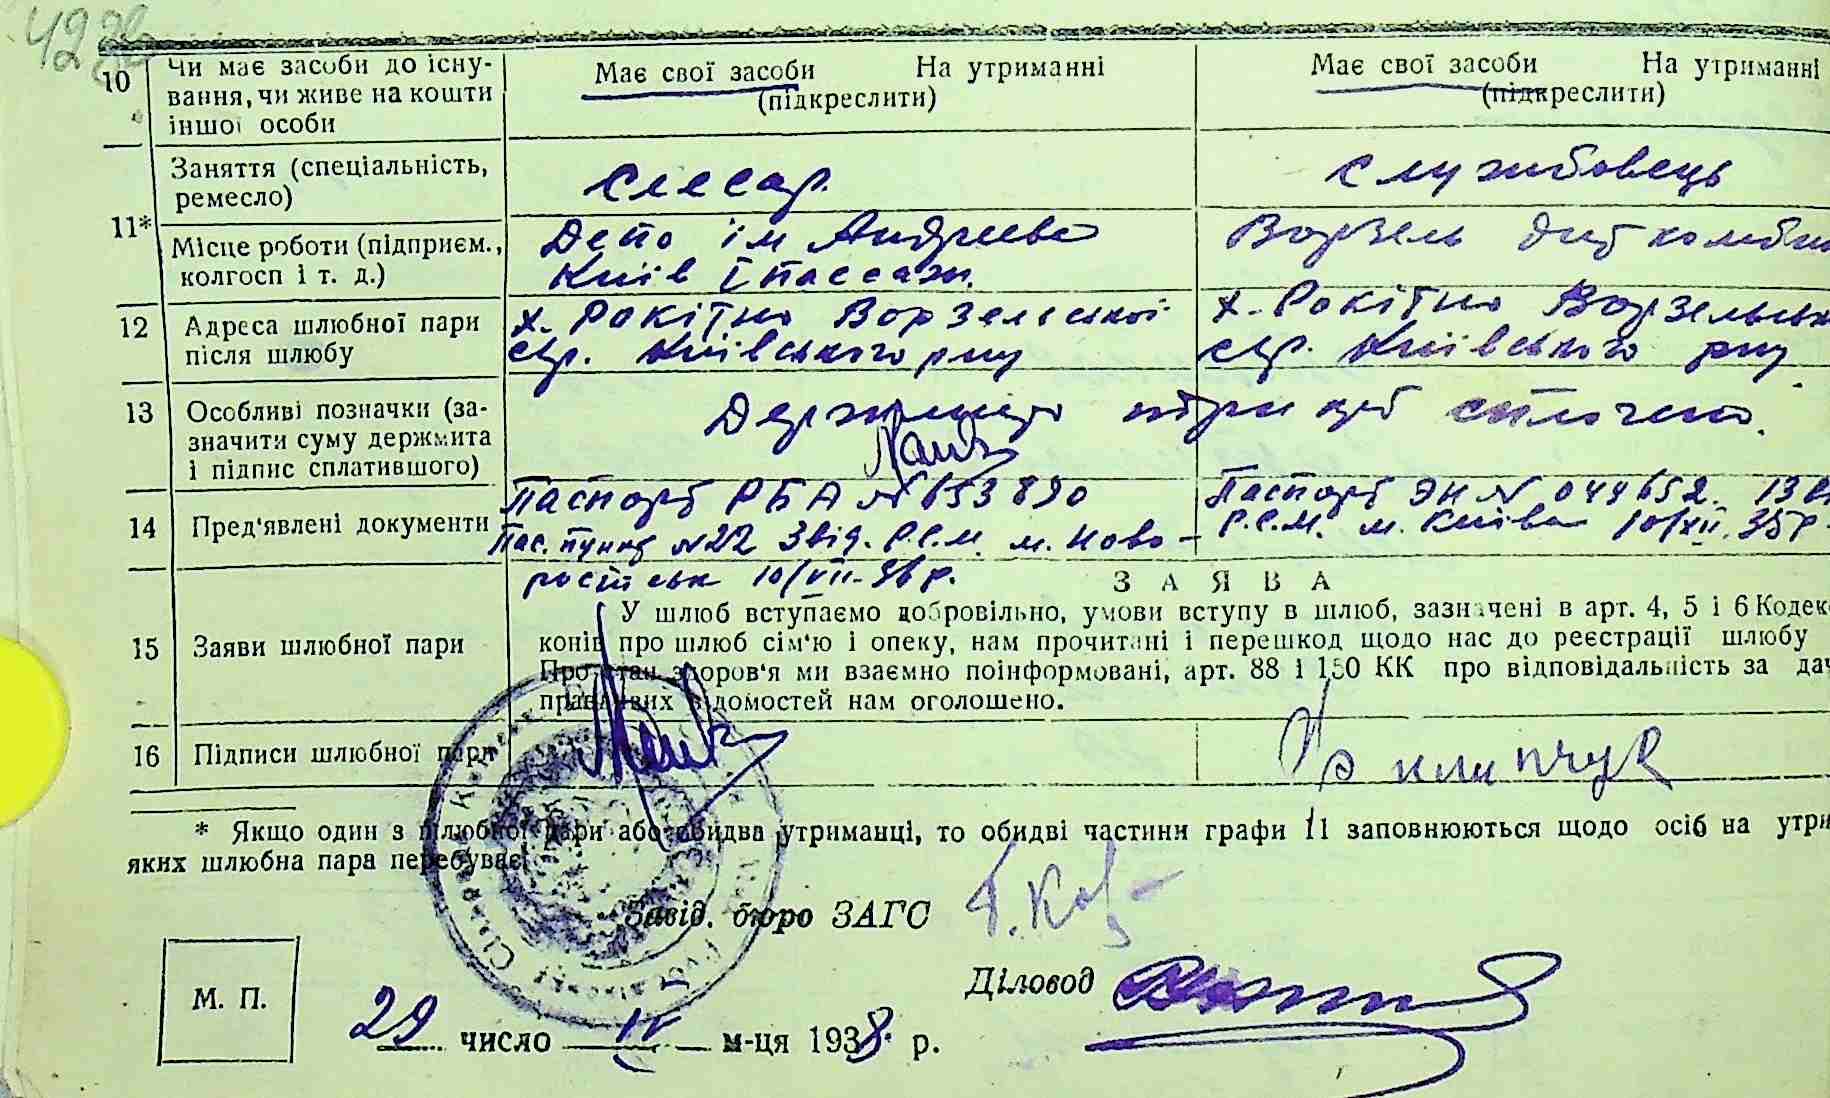 422
10 Чи має засоби до існу-
вання, чи живе на кошти
іншої особи
Має свої засоби На утриманні
(підкреслити)
Має свої засоби На утриманні
(підкреслити)
11*
Заняття (спеціальність,
ремесло)
слесар.
службовець
Місце роботи (підприєм.,
колгосп і т. д.)
Депо ім Андреева
Київ І пассаж.
Ворзель
12 Адреса шлюбної пари
після шлюбу
х. Рокітно Ворзельської
с/р. Київського р-ну
х. Рокітно Ворзельськ
с/р. Київського р-ну
13 Особливі позначки (за-
значити суму держмита
і підпис сплатившого)
сплочено.
14 Пред'явлені документи
Паспорт РБА № 653890
Пас. пункт №22 3 від. Р.С.М. м. Ново-
російськ 10/VII-36 р.
Паспорт ЭН № 044652. 13 в
Р.С.М. м. Київа 10/XII. 35 р.
15 Заяви шлюбної пари
ЗАЯВА
У шлюб вступаємо добровільно, умови вступу в шлюб, зазначені в арт. 4, 5 і 6 Кодек
конів про шлюб сім'ю і опеку, нам прочитані і перешкод щодо нас до реєстрації шлюбу
Про стан здоров'я ми взаємно поінформовані, арт. 88 і 150 КК про відповідальність за дач
правдивих відомостей нам оголошено.
16 Підписи шлюбної пари
* Якщо один з шлюбної пари або обидва утриманці, то обидві частини графи 11 заповнюються щодо осіб на утри
яких шлюбна пара перебуває.
Завід. бюро ЗАГС
Діловод
М. П.
29 число IV м-ця 1938 р.